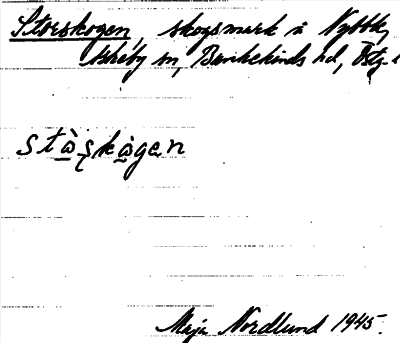 Storskogen, skogsmark i Nybble,
Askeby sn, Bankekinds hd, Östg.
stὰ̱ʂkὰ̱gen
Maja Nordlund 1945.